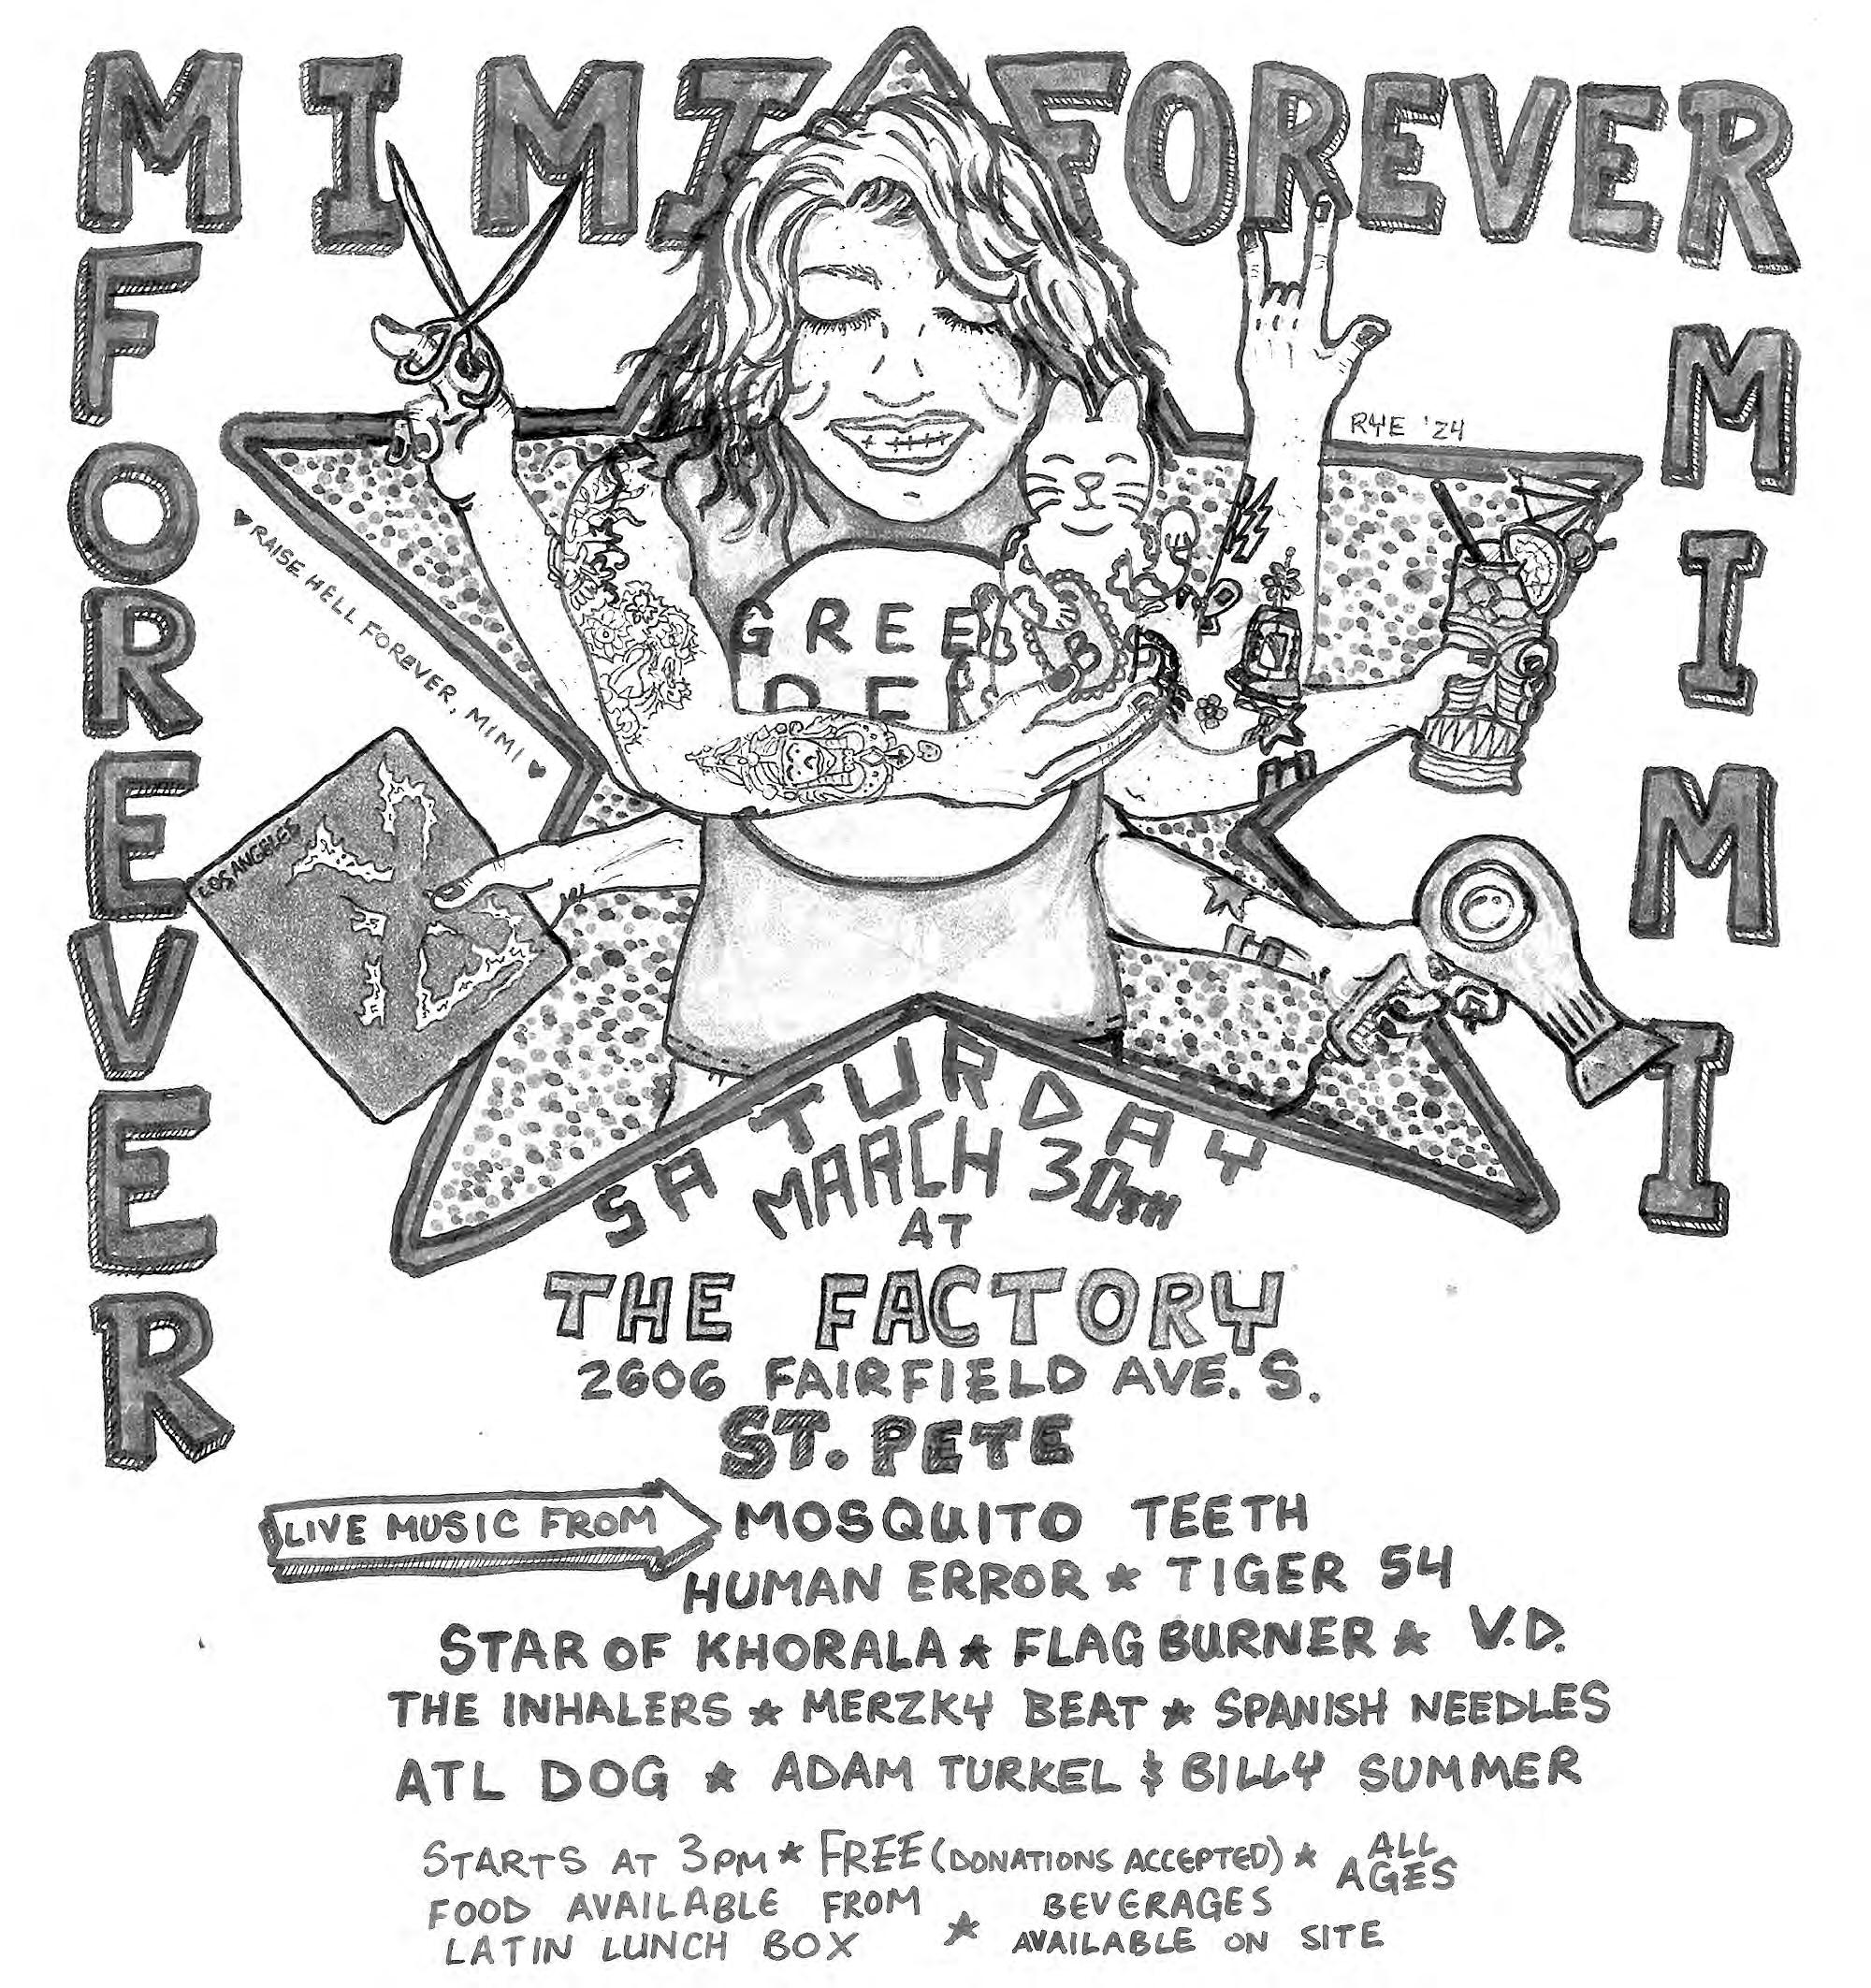 MIMI FOREVER
FOREVER
MIMI
RYE '24
♥ RAISE HELL FOREVER, MIMI ♥
GREE
DE
LOS ANGELES
SATURDAY
MARCH 30TH
AT
THE FACTORY
2606 FAIRFIELD AVE. S.
ST. PETE
LIVE MUSIC FROM
MOSQUITO TEETH
HUMAN ERROR ★ TIGER 54
STAR OF KHORALA ★ FLAG BURNER ★ V.D.
THE INHALERS ★ MERZKY BEAT ★ SPANISH NEEDLES
ATL DOG ★ ADAM TURKEL & BILLY SUMMER
STARTS AT 3PM ★ FREE (DONATIONS ACCEPTED) ★ ALL AGES
FOOD AVAILABLE FROM
LATIN LUNCH BOX
★ BEVERAGES
AVAILABLE ON SITE